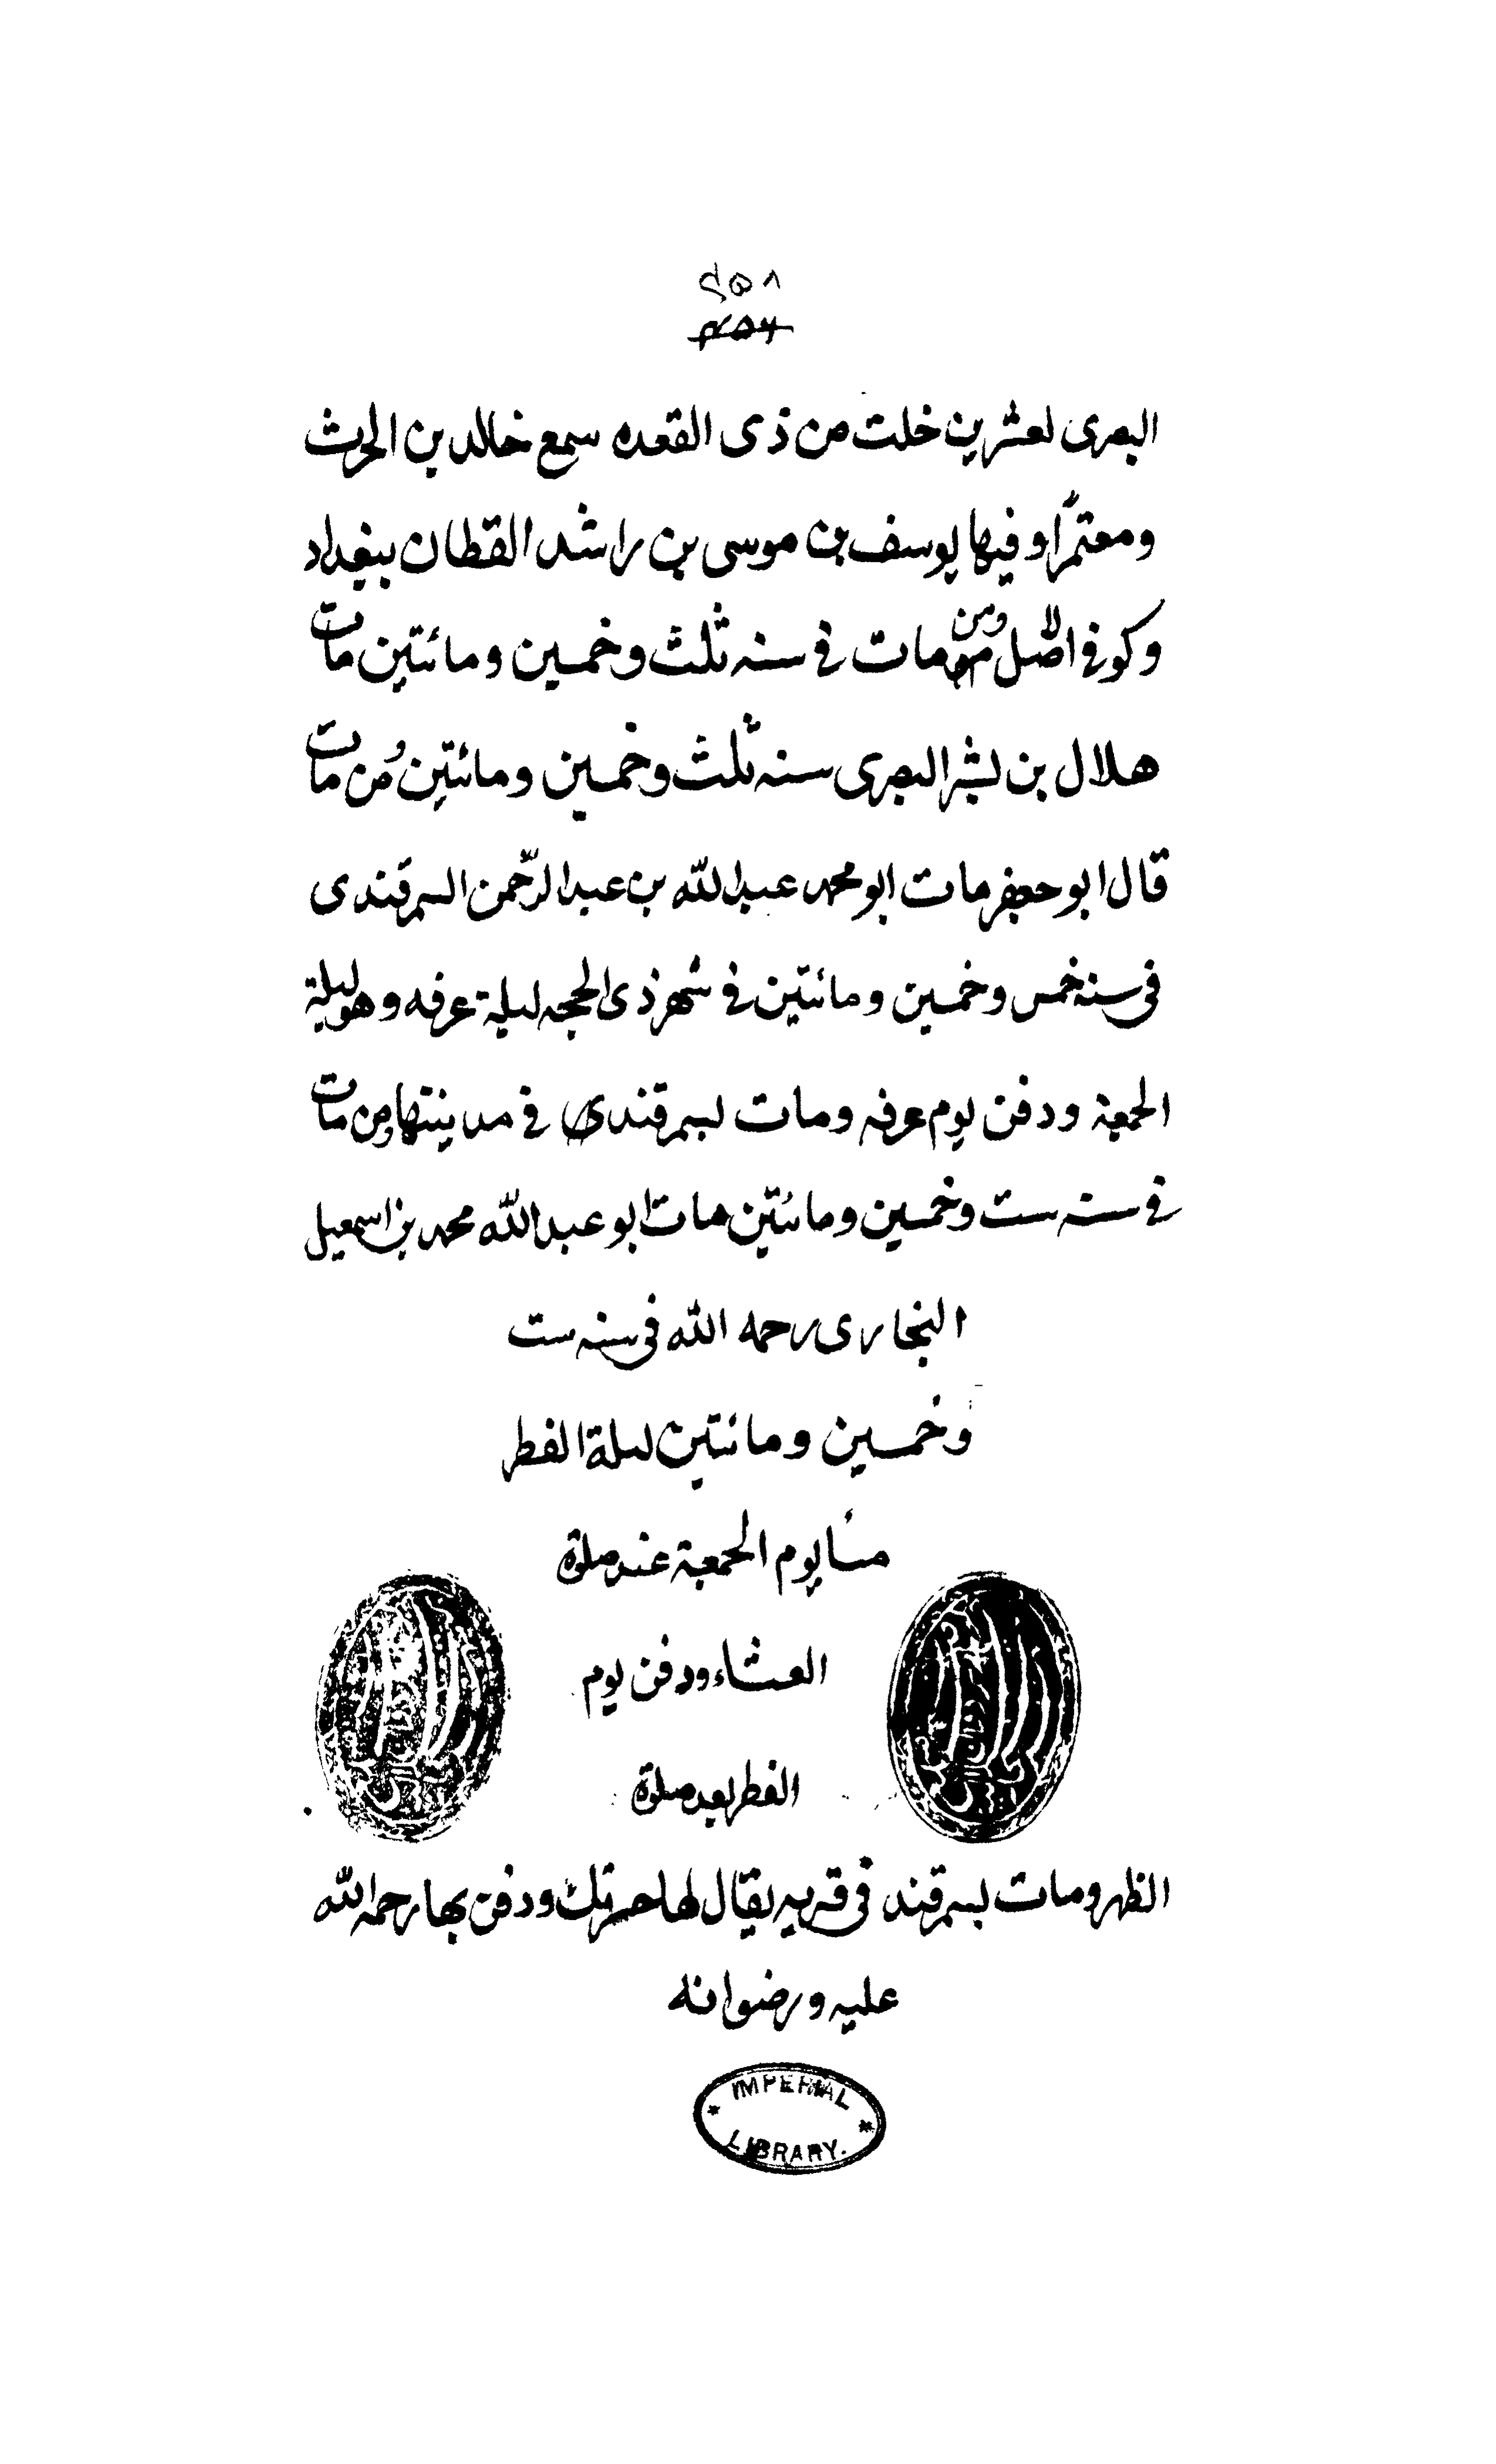 ٢٥٨
البصرى لعشرين خلت من ذى القعده سمع خالد بن الحرث
ومعتمرًا وفيها يوسف بن موسى بن راشد القطان ببغداد
وكوفى الاصل ومن مات فى سنه ثلث وخمسين ومائتين مات
هلال بن بشر البصرى سنه ثلث وخمسين ومائتين ومن مات
قال ابو جعفر مات ابو محمد عبد الله بن عبد الرحمن السمرقندى
فى سنه خمس وخمسين ومائتين فى شهر ذى الحجه ليلة عرفه وهو ليلة
الجمعة ودفن يوم عرفه ومات بسمرقندى فى مدينتها ومن مات
فى سنه ست وخمسين ومائتين مات ابو عبد الله محمد بن اسمعيل
البخارى رحمه الله فى سنه ست
وخمسين ومائتين ليلة الفطر
مسا يوم الجمعة عند صلوة
العشاء ودفن يوم
الفطر بعد صلوة
الظهر ومات بسمرقند فى قريه يقال لها خرتنك ودفن بها رحمه الله
عليه ورضوانه
IMPERIAL LIBRARY.